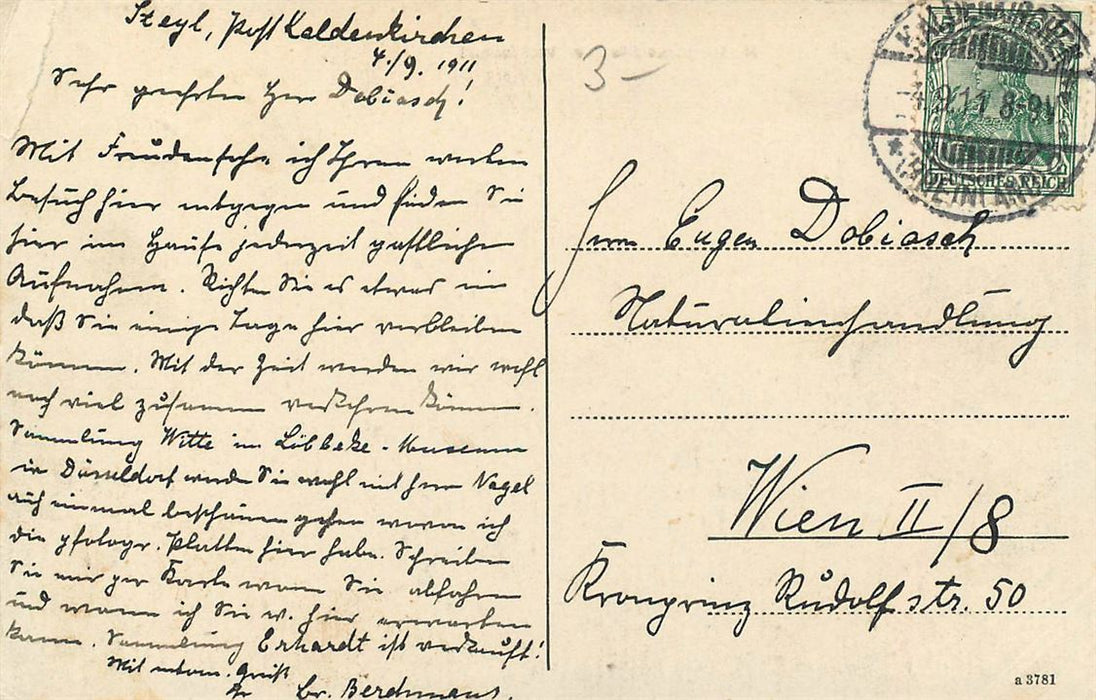 Steyl, Post Kaldenkirchen
4./9. 1911
Sehr geehrter Herr Dobiasch!
Mit Freuden sehe ich Ihrem werten
Besuch hier entgegen und finden Sie
hier im Hause jederzeit gastliche
Aufnahme. Richten Sie es etwas ein
daß Sie einige Tage hier verbleiben
können. Mit der Zeit werden wir wohl
noch viel zusammen verkehren können.
Sammlung Witte im Löbbeke-Museum
in Düsseldorf werden Sie wohl mit Herrn Nagel
auch einmal beschauen gehen wovon ich
die photogr. Platten hier habe. Schreiben
Sie mir per Karte wann Sie abfahren
und wann ich Sie hier erwarten
kann. Sammlung Erhardt ist verkauft!
Mit Gruß
Br. Berchmans.
3-
DEUTSCHES REICH
KALDENKIRCHEN
4.9.11 8-9V
* (RHEINLAND)
Herrn Eugen Dobiasch
Naturalienhandlung
Wien II/8
Kronprinz Rudolfstr. 50
a 3781